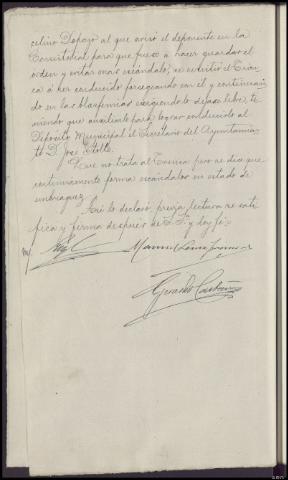 celino Donozo al que avisó el deponente en la
Territorial para que fuese a hacer guardar el
orden y evitar mas escándalo, se resistió el Eran-
ca á ser conducido forcegeando con él y continuan-
do en las blasfemias exigiendo lo dejase libre, te-
niendo que auxiliarle para lograr conducirlo al
Depósito Municipal el Secretario del Ayuntamien-
to D. José
Que no trata al pero se dice que
continuamente forma escándalos en estado de
embriaguez.
Así lo declaró, previa lectura se rati-
fica y firma después de S. Sª. y doy fe=
Manuel
Gerardo